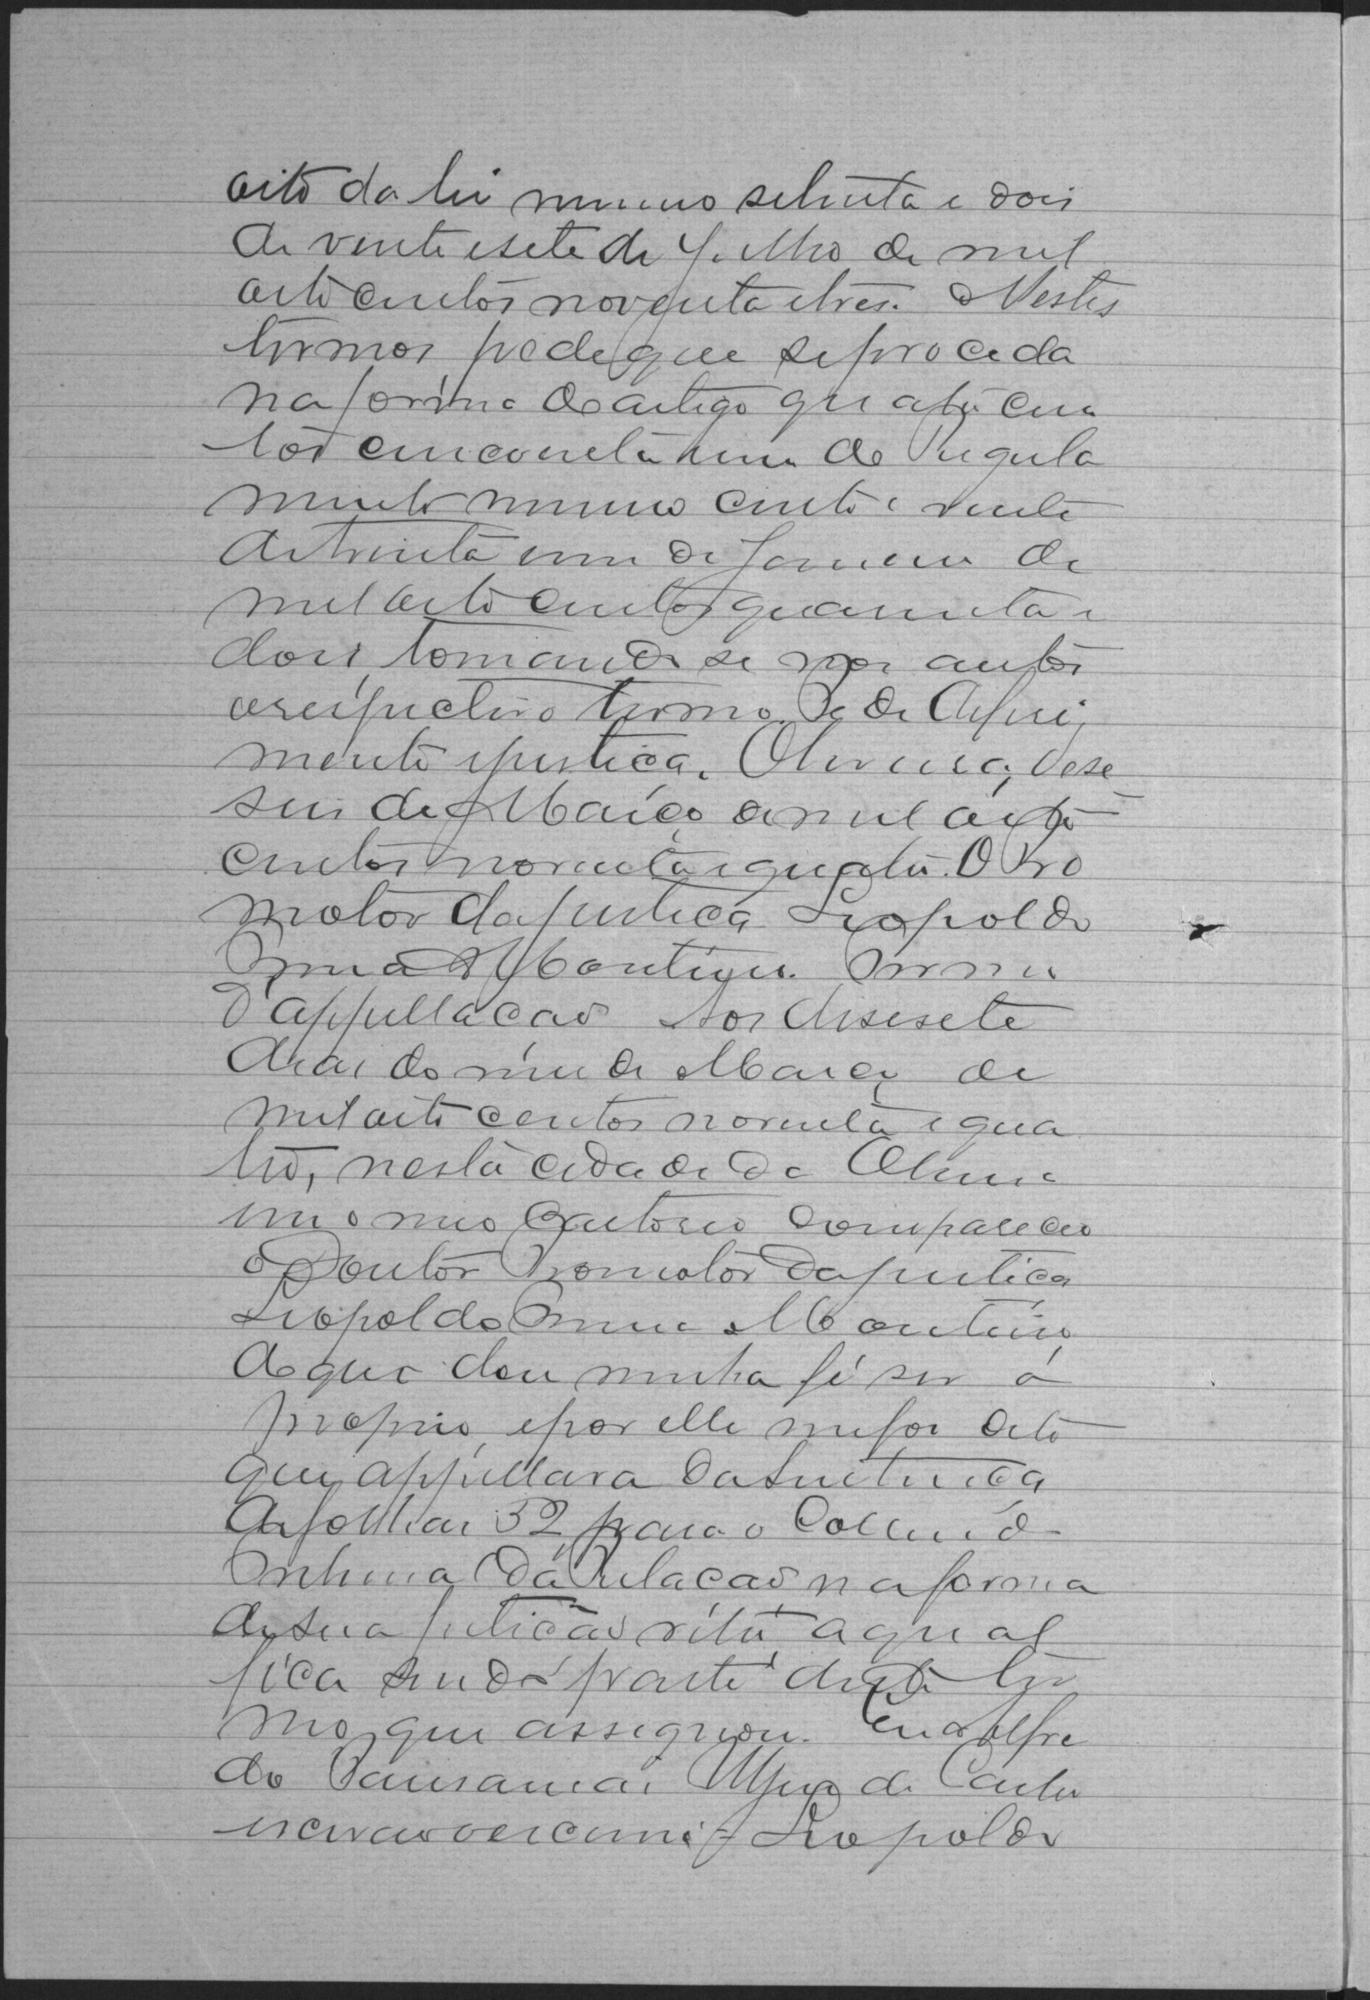 oito da lei numero setenta e dois
de vinte e sete de Julho de mil
oito centos noventa e tres. Nestes
termos pede que se proceda
na forma do artigo quatro cen
tos cincoenta e um do Regula
mento numero cento e vinte
de trinta e um de Janeiro de
mil oito centos quarenta e
dois, tomando se nos autos
o respectivo termo. P. de
mento e justiça. Oliveira, dese
seis de Março de mil oito
centos noventa e quatro. O Pro
motor da justiça Leopoldo
Monteiro. Termo
d'appellação Aos desesete
dias do mez de Março de
mil oito centos noventa e qua
tro, nesta cidade de Oliveira
em o meo Cartorio compareceo
o Doutor Promotor da justiça
Leopoldo Monteiro,
de que dou minha fé ser o
proprio, e por elle me foi dito
que appellava da sentença
de folhas 32, para o Collendo
Tribunal da Relação, na forma
de sua petição retro, a qual
fica sendo parte deste ter
mo, que assignou. Eu Alfre
do de Castro
escrivão o escrevi = Leopoldo